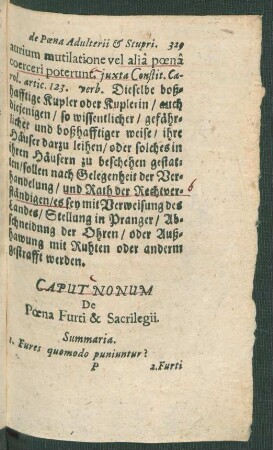 de Pœna Adulterii & Stupri. 329
aurium mutilatione vel aliâ pœnâ
coerceri poterunt. juxta Constit. Ca-
rol. artic. 123. verb. Dieselbe boß-
hafftige Kupler oder Kuplerin / auch
diejenigen / so wissentlicher / gefähr-
licher und boßhafftiger weise / ihre
Häuser darzu leihen / oder solches in
ihren Häusern zu beschehen gestat-
ten / sollen nach Gelegenheit der Ver-
handelung / und Rath der Rechtver-
ständigen / es sey mit Verweisung des
Landes / Stellung in Pranger / Ab-
schneidung der Ohren / oder Auß-
hawung mit Ruhten oder anderm
gestrafft werden.
CAPUT NONUM
De
Pœna Furti & Sacrilegii.
Summaria.
1. Fures quomodo puniuntur?
P 2. Furti